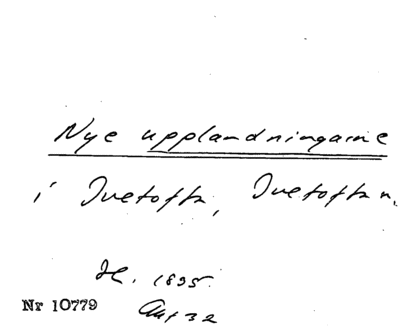 Nye upplandningarne
i Ivetofta, Ivetofta n.
H. 1895.
Akt 32
Nr 10779